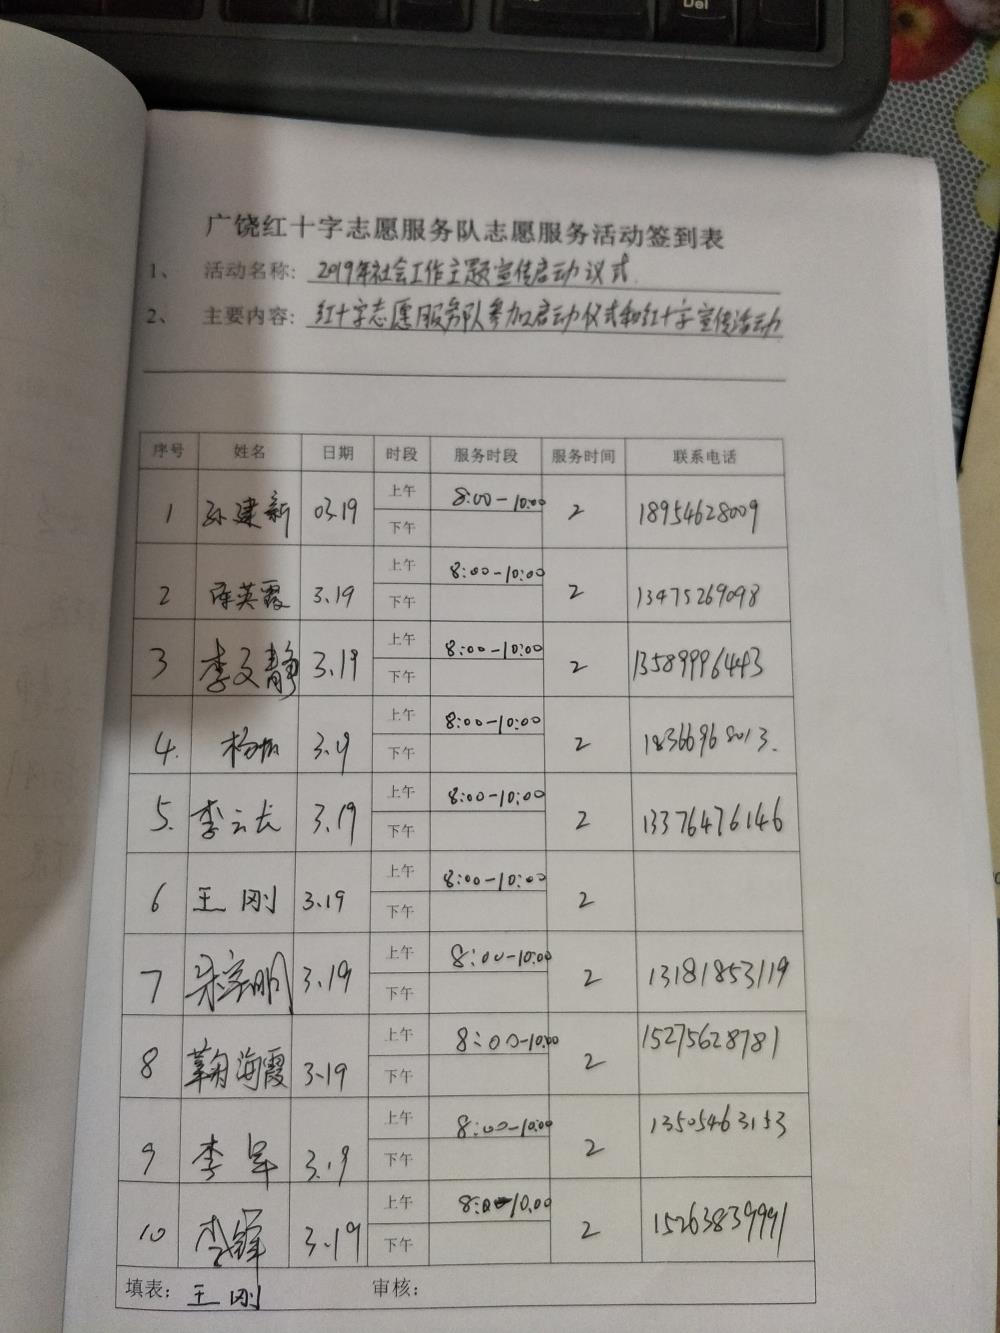 Del
广饶红十字志愿服务队志愿服务活动签到表
1、 活动名称: 2019年社会工作主题宣传启动仪式.
2、 主要内容: 红十字志愿服务队参加启动仪式和红十字宣传活动
序号 姓名 日期 时段 服务时段 服务时间 联系电话
1 孙建新 03.19 上午 8:00-10:00 2 18954628009
下午
2 陈英霞 3.19 上午 8:00-10:00 2 13475269098
下午
3 李文静 3.19 上午 8:00-10:00 2 13589996443
下午
4. 杨 3.19 上午 8:00-10:00 2 18366968013.
下午
5. 李云长 3.19 上午 8:00-10:00 2 13376476146
下午
6 王刚 3.19 上午 8:00-10:00 2
下午
7 宋宝明 3.19 上午 8:00-10:00 2 13181853119
下午
8 鞠海霞 3.19 上午 8:00-10:00 2 15275628781
下午
9 李军 3.19 上午 8:00-10:00 2 13505463153
下午
10 李锋 3.19 上午 8:00-10:00 2 15263839991
下午
填表: 王刚 审核: